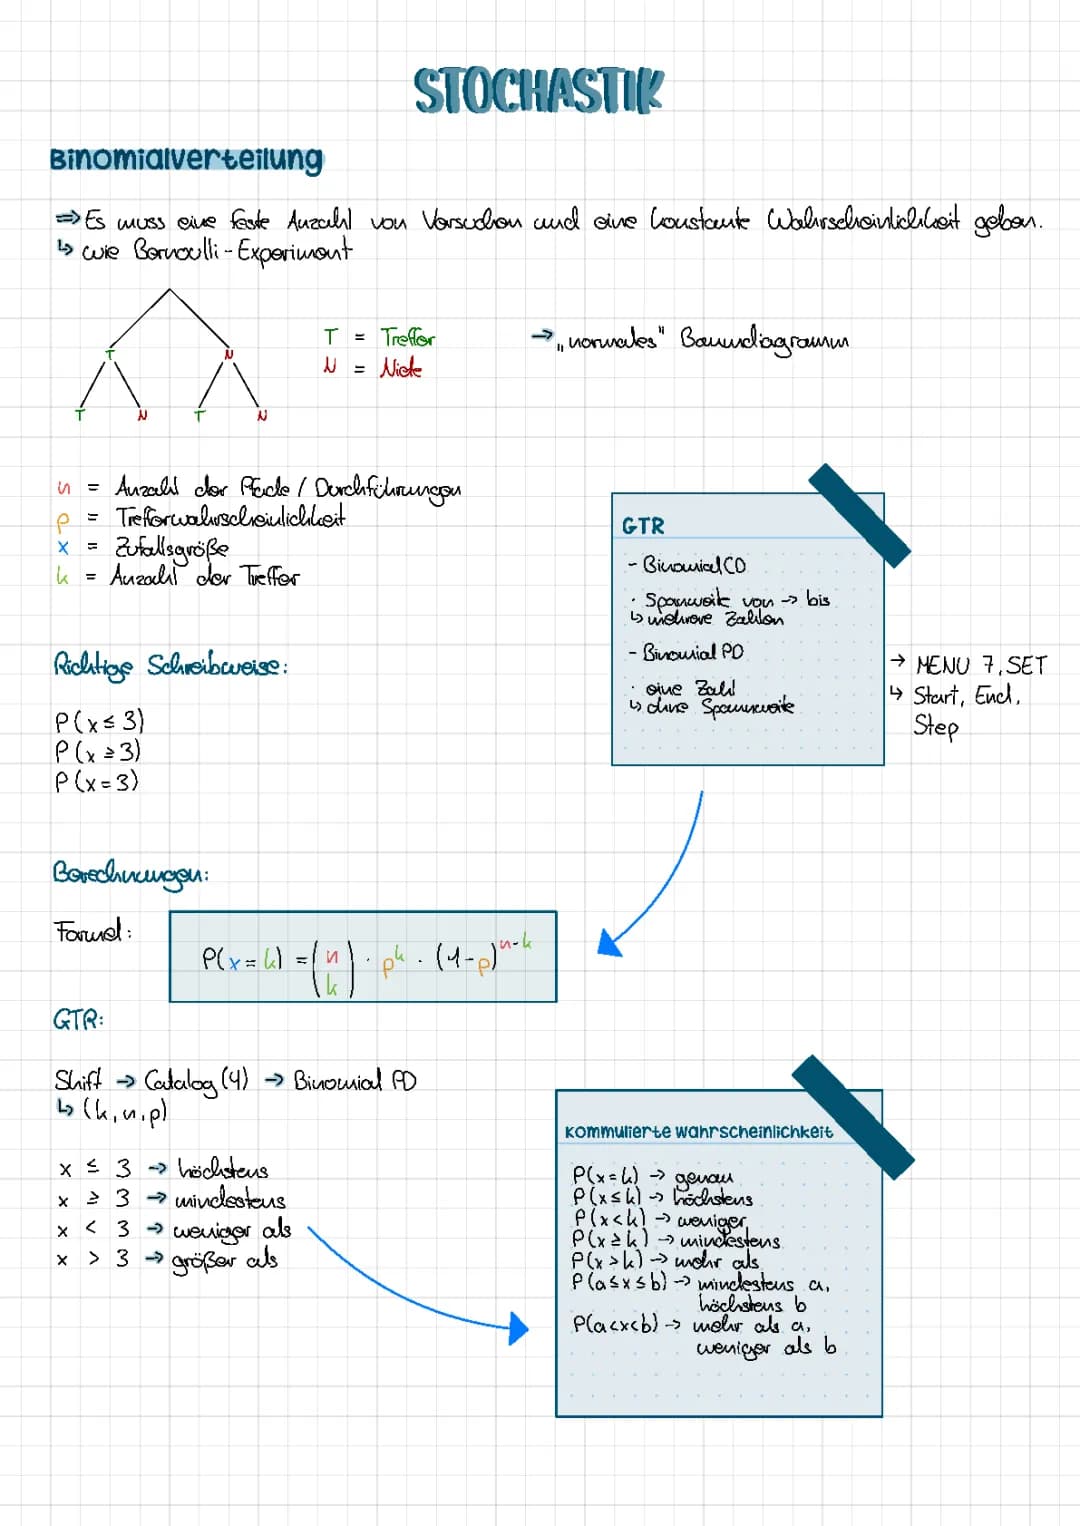 STOCHASTIK
Binomialverteilung
⇒ Es muss eine feste Anzahl von Versuchen und eine konstante Wahrscheinlichkeit geben.
↳ wie Bernoulli-Experiment
T
N
T
N
T
N
T = Treffer
N = Niete
→ „normales" Baumdiagramm
n = Anzahl der Pfade / Durchführungen
p = Trefferwahrscheinlichkeit
x = Zufallsgröße
k = Anzahl der Treffer
GTR
- Binomial CD
· Spannweite von → bis
↳ mehrere Zahlen
- Binomial PD
· eine Zahl
↳ ohne Spannweite
→ MENU 7, SET
↳ Start, End,
Step
Richtige Schreibweise:
P(x ≤ 3)
P(x ≥ 3)
P(x = 3)
Berechnungen:
Formel:
P(x = k) = (n k) · p^k · (1-p)^n-k
GTR:
Shift → Catalog (4) → Binomial PD
↳ (k, n, p)
x ≤ 3 → höchstens
x ≥ 3 → mindestens
x < 3 → weniger als
x > 3 → größer als
Kommulierte Wahrscheinlichkeit
P(x = k) → genau
P(x ≤ k) → höchstens
P(x < k) → weniger
P(x ≥ k) → mindestens
P(x > k) → mehr als
P(a ≤ x ≤ b) → mindestens a,
höchstens b
P(a < x < b) → mehr als a,
weniger als b